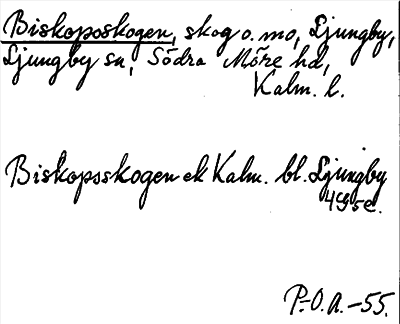 Biskopsskogen, skog o. mo, Ljungby,
Ljungby sn, Södra Möre hd,
Kalm. l.
Biskopsskogen ek Kalm. bl. Ljungby
4G5e.
P.-O.A.-55.